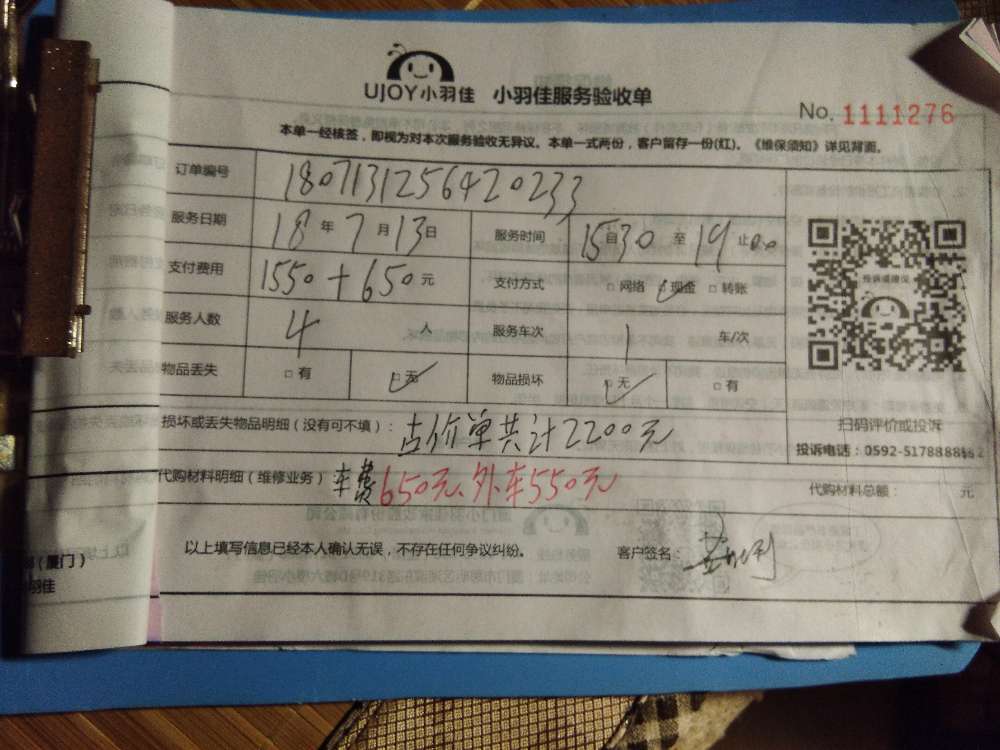 UJOY小羽佳 小羽佳服务验收单
No. 1111276
本单一经核签，即视为对本次服务验收无异议。本单一式两份，客户留存一份(红)。《维保须知》详见背面。
订单编号 1807131256420233
服务日期 18年7月13日 服务时间 15自30至19止00
支付费用 1550+650元 支付方式 □网络 □现金 □转账
服务人数 4人 服务车次 1车/次
物品丢失 □有 □无 物品损坏 □无 □有
扫码评价或投诉
损坏或丢失物品明细（没有可不填）：占价单共计2200元
投诉电话：0592-5178888
代购材料明细（维修业务）车费650元、外车550元 代购材料总额： 元
以上填写信息已经本人确认无误，不存在任何争议纠纷。 客户签名：
（厦门）
羽佳